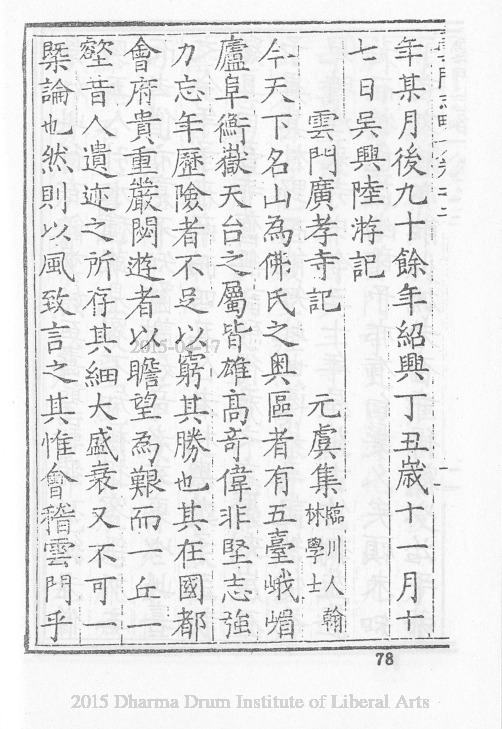 年某月後九十餘年紹興丁丑歲十一月十
七日吳興陸游記
雲門廣孝寺記 元虞集臨川人翰林學士
今天下名山為佛氏之奧區者有五臺峨嵋
廬阜衡嶽天台之屬皆雄高竒偉非堅志強
力忘年歷險者不足以窮其勝也其在國都
會府貴重嚴閟遊者以瞻望為艱而一丘一
壑昔人遺迹之所存其細大盛衰又不可一
槩論也然則以風致言之其惟會稽雲門乎
78
2015-04-17
2015 Dharma Drum Institute of Liberal Arts